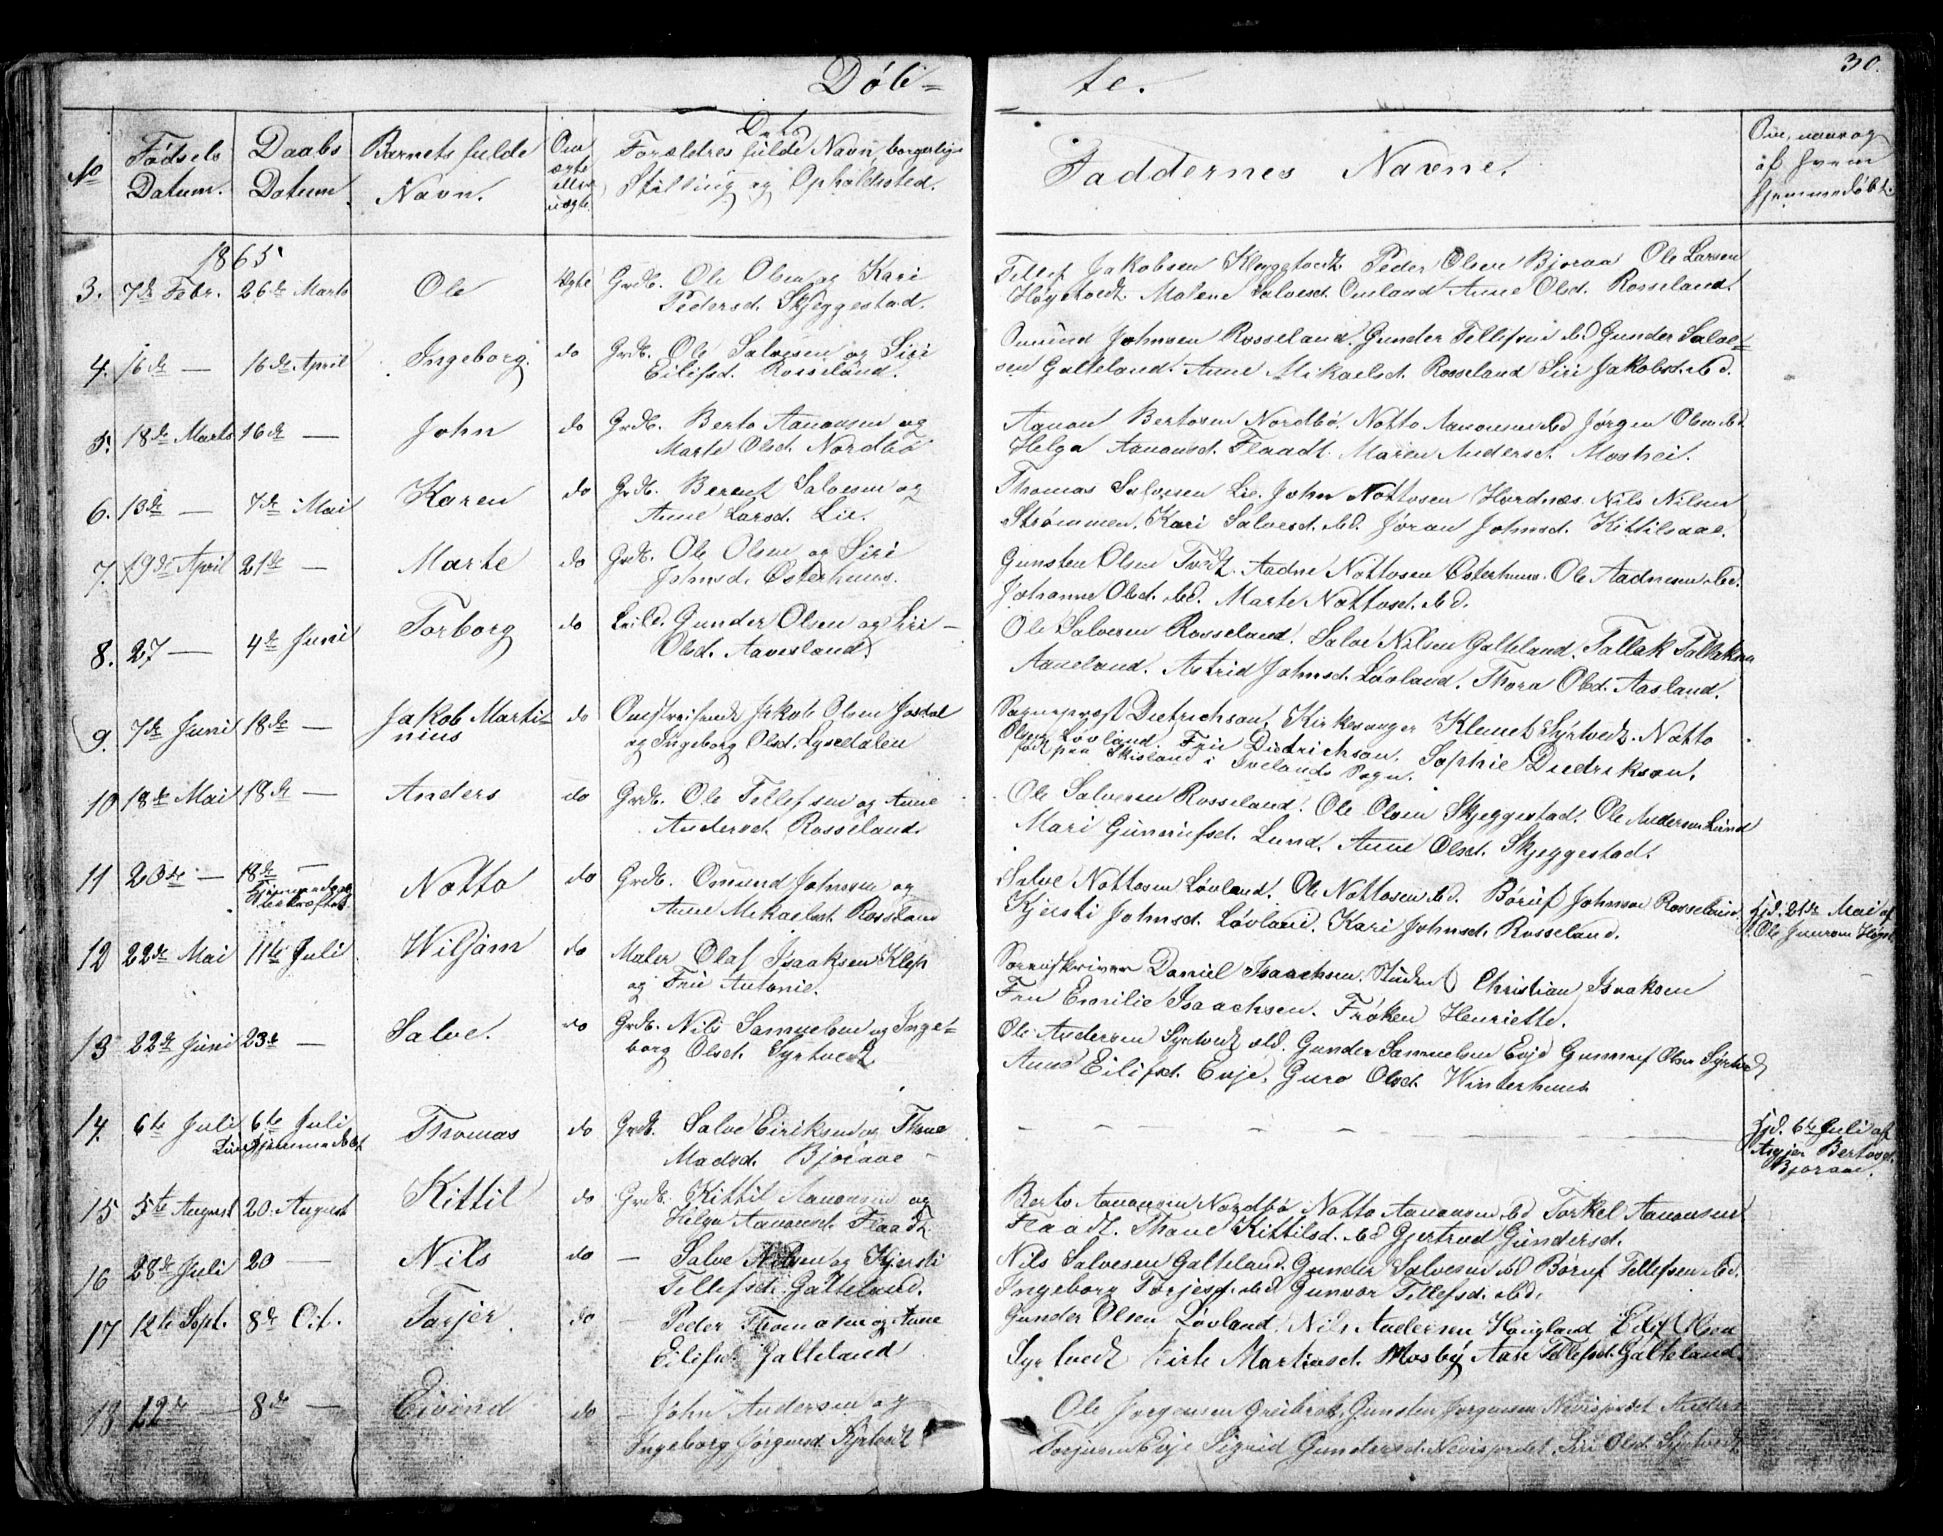 Døb=
te.
30.
No
Fødsels Datum.
Daabs Datum
Barnets fulde Navn.
Om ægte eller uægte.
Forældres fulde Navn, borgerlige Stilling og Opholdssted.
Faddernes Navne.
Om, naar og af hvem hjemmedøbt.
1865
3. 7de Febr. 26de Marts Ole Ægte Grdb. Ole Olsen og Kari
Pedersd. Skjeggestad.
Tellef Jakobsen Peder Olsen Bjoraa Ole Larsen
Malene Salvesd. Omland Anne Olsd. Rosseland.
4. 16de — 16de April Ingeborg. do Grdb. Ole Salvesen og Siri
Eilifsd. Rosseland.
Omund Johnsen Rosseland. Gunder Tellefsen ibd Gunder Salve=
sen Galteland. Anne Mikaelsd. Rosseland Siri Jakobsd. ibd.
5. 18de Marts 16de — John do Grdb. Berto Aanonsen og
Marte Olsd. Nordbø
Aanon Bertosen Nordbø, Notto Aanonsen ibd Jørgen Olsen ibd.
Helga Aanonsd. Flaadt. Maren Andersd. Moshei.
6. 13de — 7de Mai Karen do Grdb. Berent Salvesen og
Anne Larsd. Lie.
Thomas Salvesen Lie. John Nottosen Hordnæs. Nils Nilsen
Strømmen. Kari Salvesd. ibd. Jøran Johnsd. Kittilsaae.
7. 19de April 21de — Marte do Grdb. Ole Olsen og Siri
Johnsd. Østerhuus.
Gunsten Olsen Aadne Nottosen Østerhuus. Ole Aadnesen ibd.
Johanne Olsd. ibd. Marte Nottosd. ibd.
8. 27 — 4de Juni Torborg do Leild. Gunder Olsen og Siri —
Olsd. Aavesland.
Ole Salvesen Rosseland. Salve Nilsen Galteland. Tallak Tallaksen
Aaneland. Astrid Johnsd. Løvland. Thora Olsd. Aasland.
9. 7de Juni 18de — Jakob Marti=
nius do Omstreifende Jakob Olsen Jostal
og Ingeborg Olsd. Lysedalen
Sogneprest Dietrichson, Kirkesanger Klemet Syrtvedt. Notto
Olsen Løvland. Fru Dietrichson. Sophie Diedrikson.
født paa Skisland i Ivelands Sogn.
10 18de Mai 18de — Anders do Grdb. Ole Tellefsen og Anne
Andersd. Rosseland.
Ole Salvesen Rosseland. Ole Olsen Skjeggestad. Ole Andersen Lund
Mari Gunniufsd. Lund. Anne Olsd. Skjeggestad.
11 20de — 18de —
Notto do Grdb. Omund Johnsen og
Anne Mikaelsd. Rosseland
Salve Nottosen Løvland. Ole Nottosen ibd. Børuf Johnsen Rosseland.
Kjersti Johnsd. Løvland. Kari Johnsd. Rosseland.
Hjd. 21de Mai af
Ole
12 22de Mai 11te Juli Wiljam do Maler Olaf Isaaksen Klep
og Frue Antonie.
Sorenskriver Daniel Isaachsen. Student Christian Isaaksen
Fru Emilie Isaachsen. Frøken Henriette.
13 22de Juni 23de — Salve. do Grdb. Nils Samuelsen og Inge=
borg Olsd. Syrtvedt
Ole Andersen Syrtvedt old. Gunder Samuelsen Evje Gunnuf Olsen Syrtvedt
Anne Eilifsd. Evje. Guro Olsd. Winterhuus
14. 6te Juli 6te Juli
Hjemmedøbt
Thomas do Grdb. Salve Eiriksen og Thone
Madsd. Bjoraae —
Hjd. 6te Juli af
Asgjer Bertosd.
Bjoraae.
15 5te August 20. August Kittil do Grdb. Kittil Aanonsen og
Helga Aanonsd. Flaadt
Berto Aanonsen Nordbø Notto Aanonsen ibd Torkel Aanonsen
Flaadt. Thone Kittilsd. ibd Gjertrud Gundersd.
16 28de Juli 20 — Nils do — Salve Nilsen og Kjersti
Tellefsd. Galteland.
Nils Salvesen Galteland. Gunder Salvesen ibd Børuf Tellefsen ibd.
Ingeborg Torjesd. ibd Gunvor Tellefsd. ibd.
17 12te Sept. 8de Oct. Tarjer do — Peder Thomasen og Anne
Eilifsd. Galteland
Gunder Olsen Løvland. Nils Andersen Haugland Eilif Olsen
Syrtvedt Kirte Martinsd. Mosby Aase Tellefsd. Galteland.
18 12de — 8de — Eivind do — John Andersen og
Ingeborg Jørgensd. Syrtvedt
Ole Jørgensen Gunsten Jørgensen Anders
Evje Sigrid Gundersd. Siri Olsd. Syrtvedt